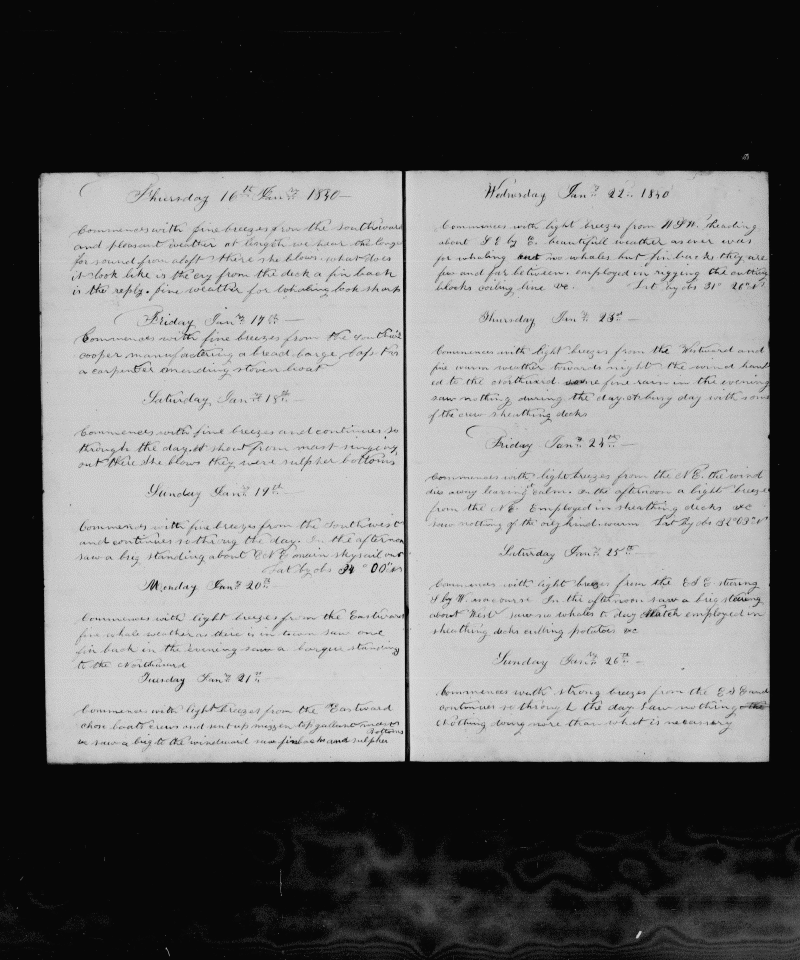 Thursday 16th Jany 1840
Commences with fine breezes from the Southward
and pleasant weather at length we hear the long
for sound from aloft there she blows. what does
it look like is the cry from the deck a fin back
is the reply. fine weather for whaling look sharp
Friday Jany 17th
Commences with fine breezes from the
cooper manufactering a bread barge,
a carpenter emending stoven boat
Saturday, Jany 18th
Commences with fine breezes and continues so
through the day. A shout from mast singing
out there she blows they were sulpher bottoms
Sunday Jany 19th
Commences with fine breezes from the Southwest
and continues so throug the day. In the afternoon
saw a brig standing about ENE main skysail out
Lat by obs 34° 00' N
Monday Jany 20th
Commences with light breezes from the Eastward
fine whale weather as there is in town saw one
fin back in the evening saw a barque standing
to the Northward
Tuesday Jany 21st
Commences with light breezes from the Eastward
chose boats crews and sent up mizzen top gallant
we saw a brig to the windward saw finbacks and sulpher
bottoms
Wednesday Jany 22. 1840
Commences with light breezes from heading
about S E by E. beautiful weather as ever was
for whaling but no whales but fin backs they are
few and far between. employed in rigging the cutting
blocks coiling line &c. Lat by obs 31° 20' N
Thursday Jany 23d
Commences with light breezes from the Westward and
fine warm weather towards night the wind haul
ed to the Northward some fine rain in the evening
saw nothing during the day. A busy day with some
of the crew sheathing decks
Friday Jany 24th
Commences with light breezes from the N.E. the wind
dies away leaving calm. In the afternoon a light breeze
from the N.E. Employed in sheathing decks &c
saw nothing of the oily kind. warm Lat by obs 32° 03' N
Saturday Jany 25th
Commences with light breezes from the ESE stering
S by W is our course In the afternoon saw a brig stering
about West saw no whales to day Watch employed in
sheathing decks culling potatoes &c
Sunday Jany 26th
Commences with strong breezes from the E S E and
continues so through the day saw nothing the
Nothing doing more than what is necessary